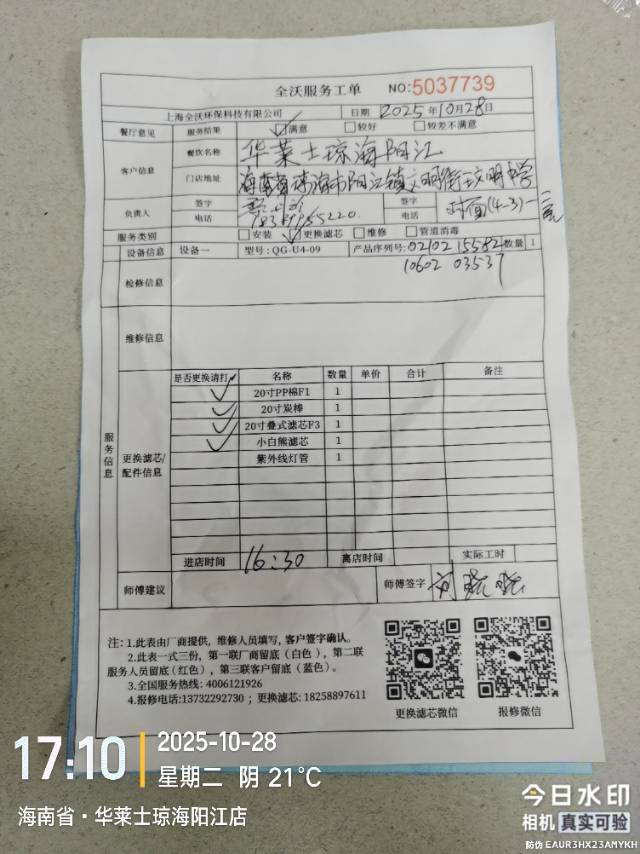 全沃服务工单 NO:5037739
上海全沃环保科技有限公司 日期 2025年10月28日
餐厅意见 服务结果 ☑满意 □较好 □较差不满意
客户信息 餐饮名称 华莱士琼海阳江
门店地址 海南省琼海市阳江镇文明街文明中学
负责人 签字 签字 对面(4-3)一
电话 电话
服务类别 □安装 ☑更换滤芯 □维修 □管道消毒
设备信息 设备一 型号:QG-U4-09 产品序列号:02102 15582 数量 1
10602 03537
检修信息
维修信息
服务信息
更换滤芯/配件信息
是否更换请打✓ 名称 数量 单价 合计 备注
✓ 20寸PP棉F1 1
✓ 20寸炭棒 1
✓ 20寸叠式滤芯F3 1
✓ 小白熊滤芯 1
紫外线灯管 1
进店时间 16:30 离店时间 实际工时
师傅建议 师傅签字
注:1.此表由厂商提供,维修人员填写,客户签字确认。
2.此表一式三份,第一联厂商留底(白色),第二联
服务人员留底(红色),第三联客户留底(蓝色)。
3.全国服务热线:4006121926
4.报修电话:13732292730;更换滤芯:18258897611
更换滤芯微信 报修微信
17:10 2025-10-28
星期二 阴 21℃
海南省·华莱士琼海阳江店
今日水印
相机 真实可验
防伪 EAUR3HX23AMYKH